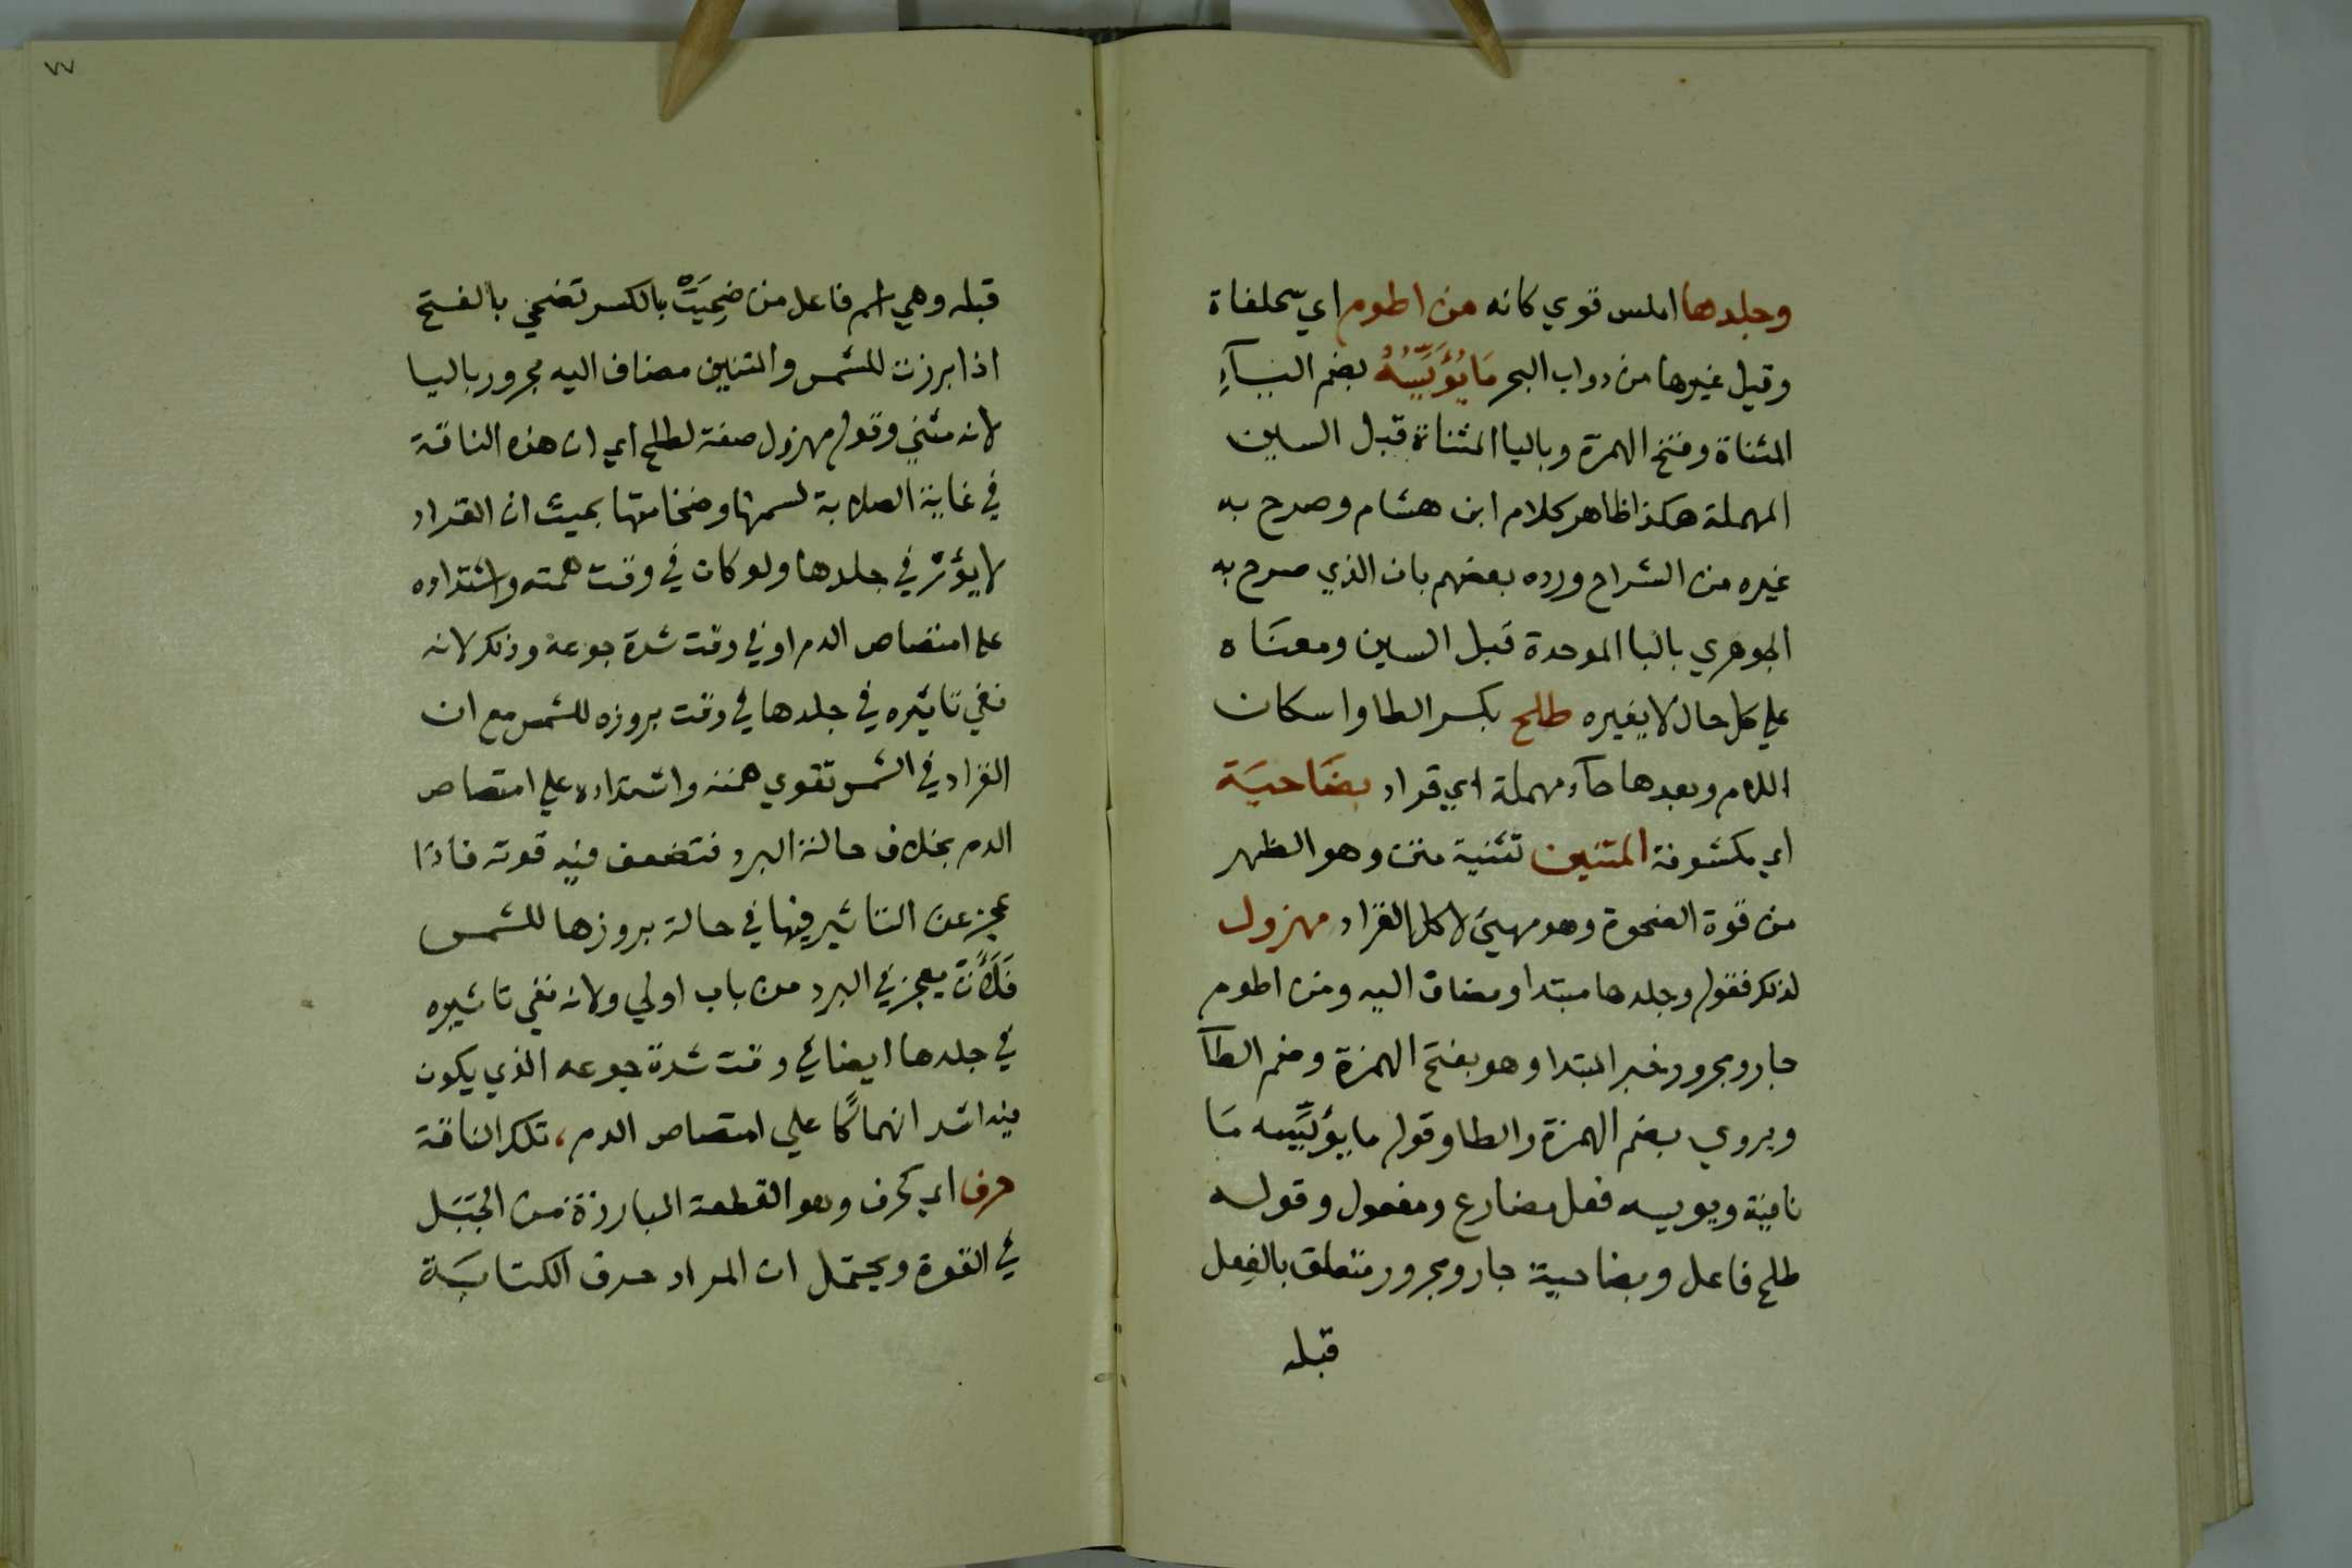 وجلدها املس قوي كانه من اطوم اي سحلفاة
وقيل غيرها من دواب البحر مَا يُؤَيِّسُهُ بضم اليآءِ
المثناة وفتح الهمزة وباليا المثناة قبل السين
المهملة هكذا ظاهر كلام ابن هشام وصرح به
غيره من الشراح ورده بعضهم بان الذي صرح به
الجوهري بالبا الموحدة قبل السين ومعنَاه
علي كل حال لا يغيره طلح بكسر الطا واسكان
اللام وبعدها حآء مهملة اي قراد بضَاحيَة
اي مكشوفة المتنين تثنية متن وهو الظهر
من قوة الضحوة وهو مهيئ لاكل القراد مهزول
لذلك فقوله وجلدها مبتدا ومضاف اليه ومن اطوم
جار ومجرور خبر المبتدا وهو بفتح الهمزة وضم الطآ
ويروي بضم الهمزة والطا وقوله ما يؤيِّسه مَا
نافية ويويسه فعل مضارع ومفعول وقوله
طلح فاعل وبضاحية جار ومجرور متعلق بالفِعل
قبله
٧٧
قبله وهي اسم فاعل من ضَحِيَتْ بالكسر تضحي بالفتح
اذا برزت للشمس والمتنين مضاف اليه مجرور باليا
لانه مثني وقوله مهزول صفة لطلح اي ان هذه الناقة
في غاية الصلابة لسمنها وضخامتها بحيث ان القراد
لا يؤثر في جلدها ولو كان في وقت همته واشتداده
علي امتصاص الدم او في وقت شدة جوعه وذلك لانه
نفي تاثيره في جلدها في وقت بروزه للشمس مع ان
القراد في الشمس تقوي همته واشتداده علي امتصاص
الدم بخلاف حالة البرد فتضعف فيه قوته فاذا
عجز عن التاثير فيها في حالة بروزها للشمس
فَلَأَنْ يعجز في البرد من باب اولي ولانه نفي تاثيره
في جلدها ايضا في وقت شدة جوعه الذي يكون
فيه اشد انهماكًا علي امتصاص الدم، تلك الناقة
حرف اي كحرف وهو القطعة البارزة من الجَبَل
في القوة ويحتمل ان المراد حرف الكتابَة